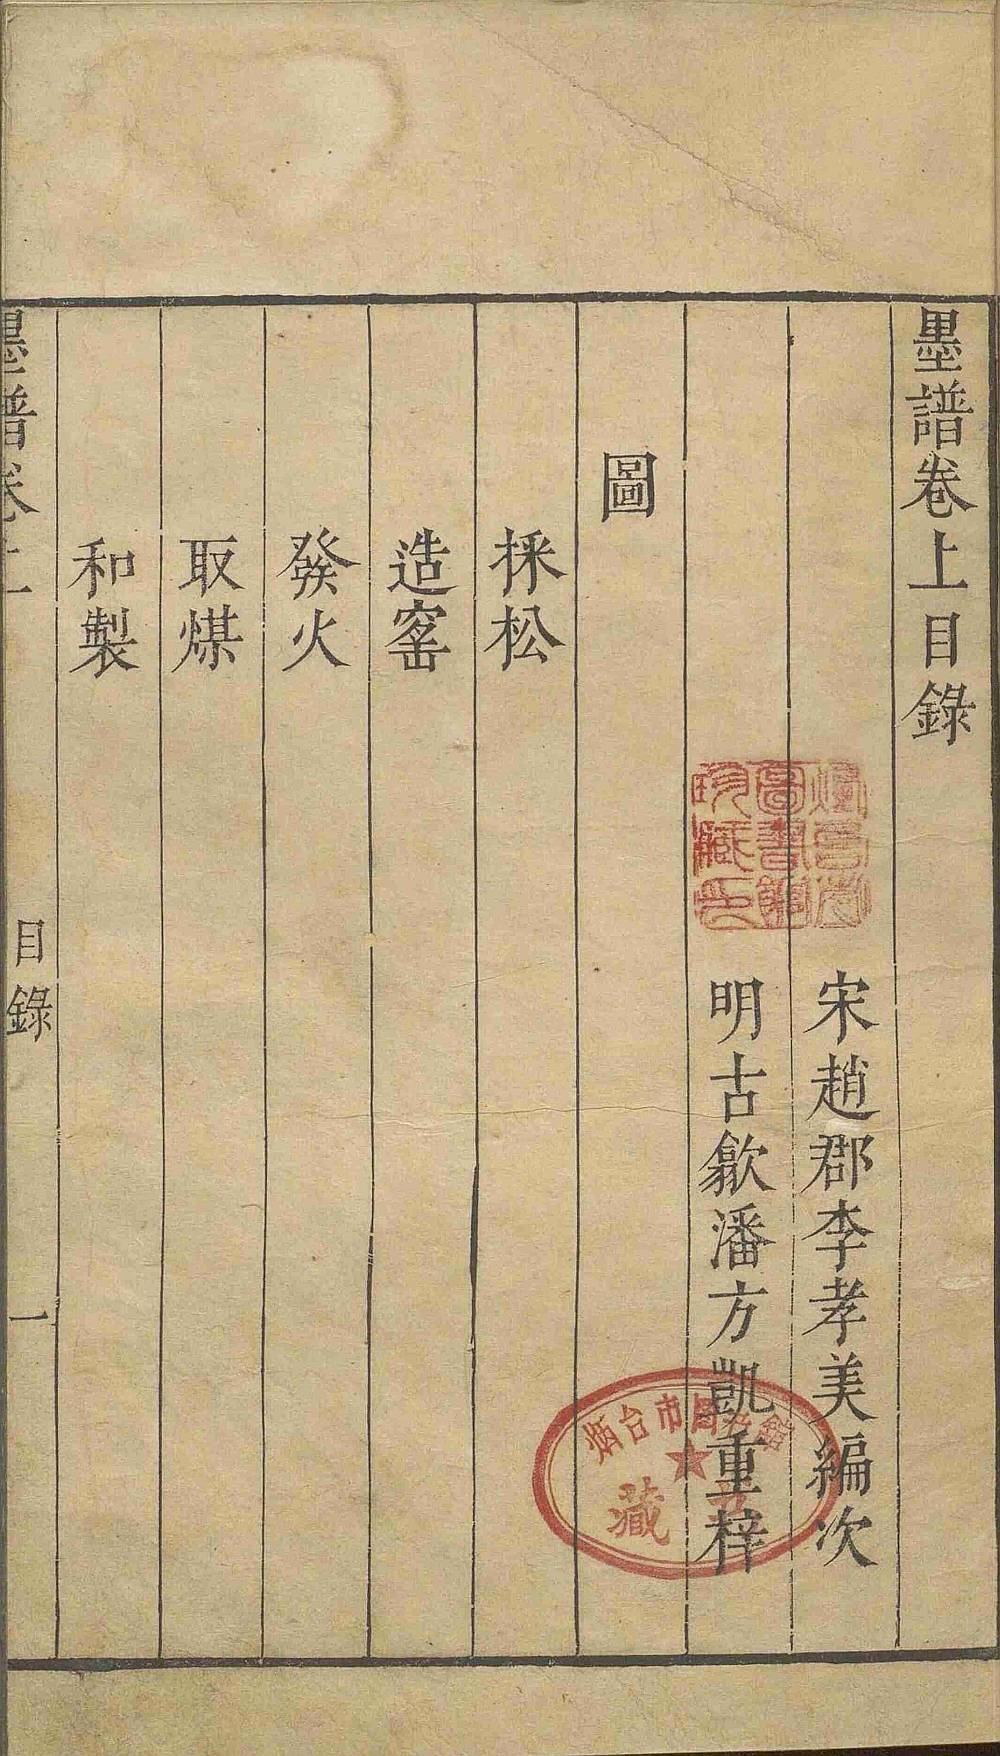 墨譜卷上目錄
宋趙郡李孝美編次
明古歙潘方凱重梓
圖
採松
造窰
發火
取煤
和製
墨譜卷上
目錄
一
圖書館
珍藏印
烟台市图书馆
藏书